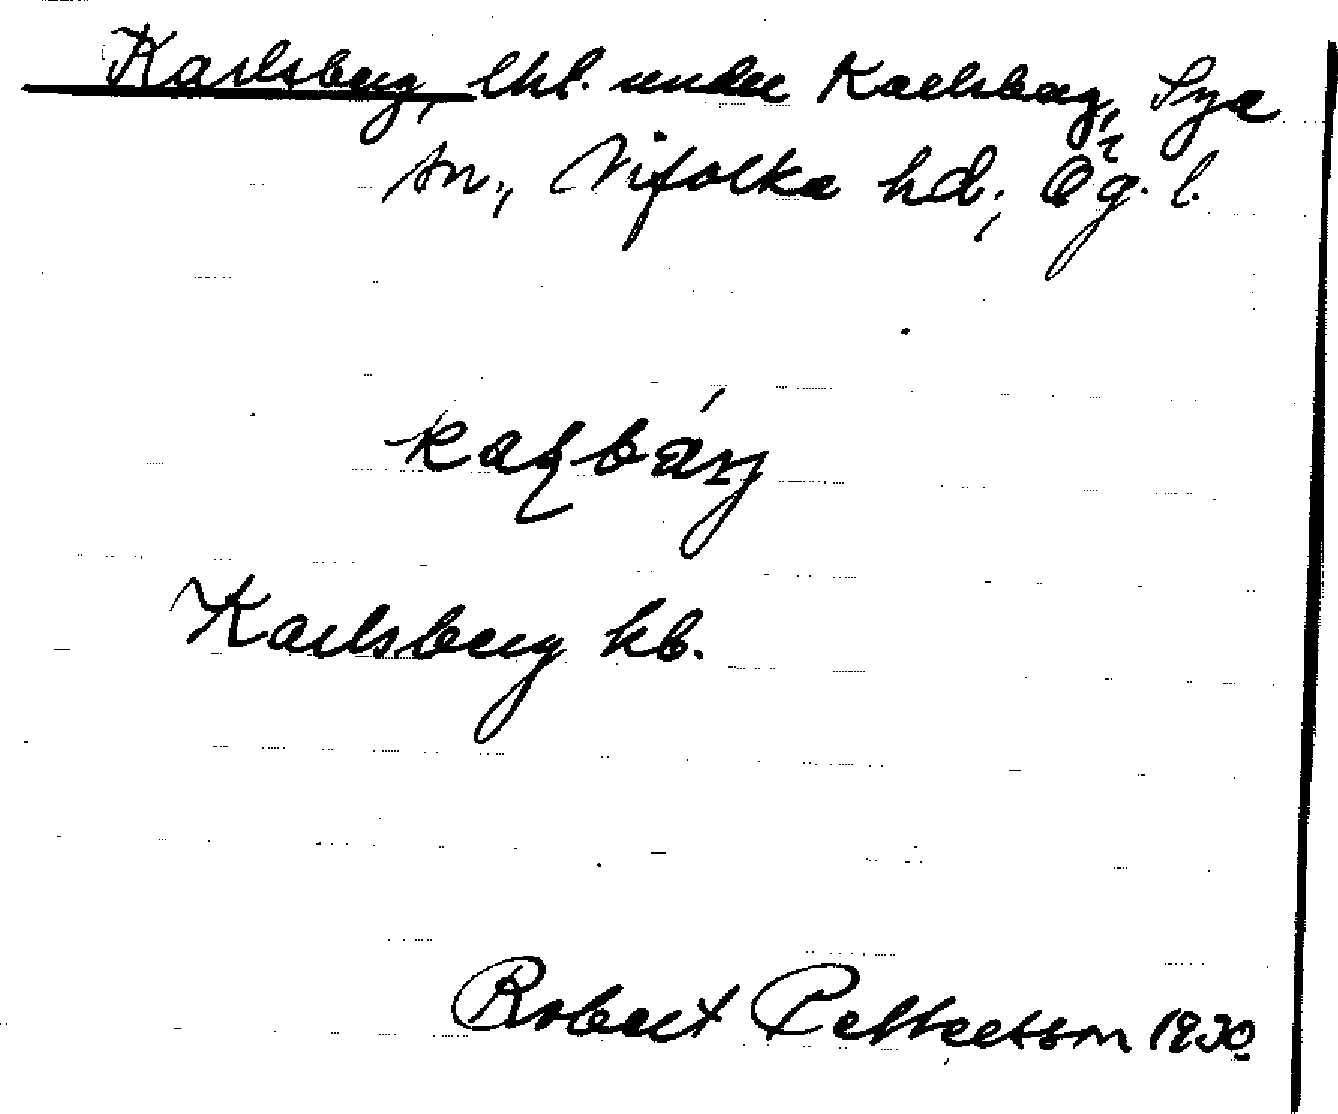 Karlsberg, lht. under Karlsberg, Sya
sn., Vifolka hd; Ög. l.
Karlsberg kb.
Robert Pettersson 1930